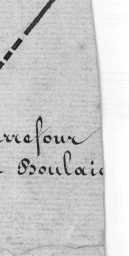 rrefour
Boulai